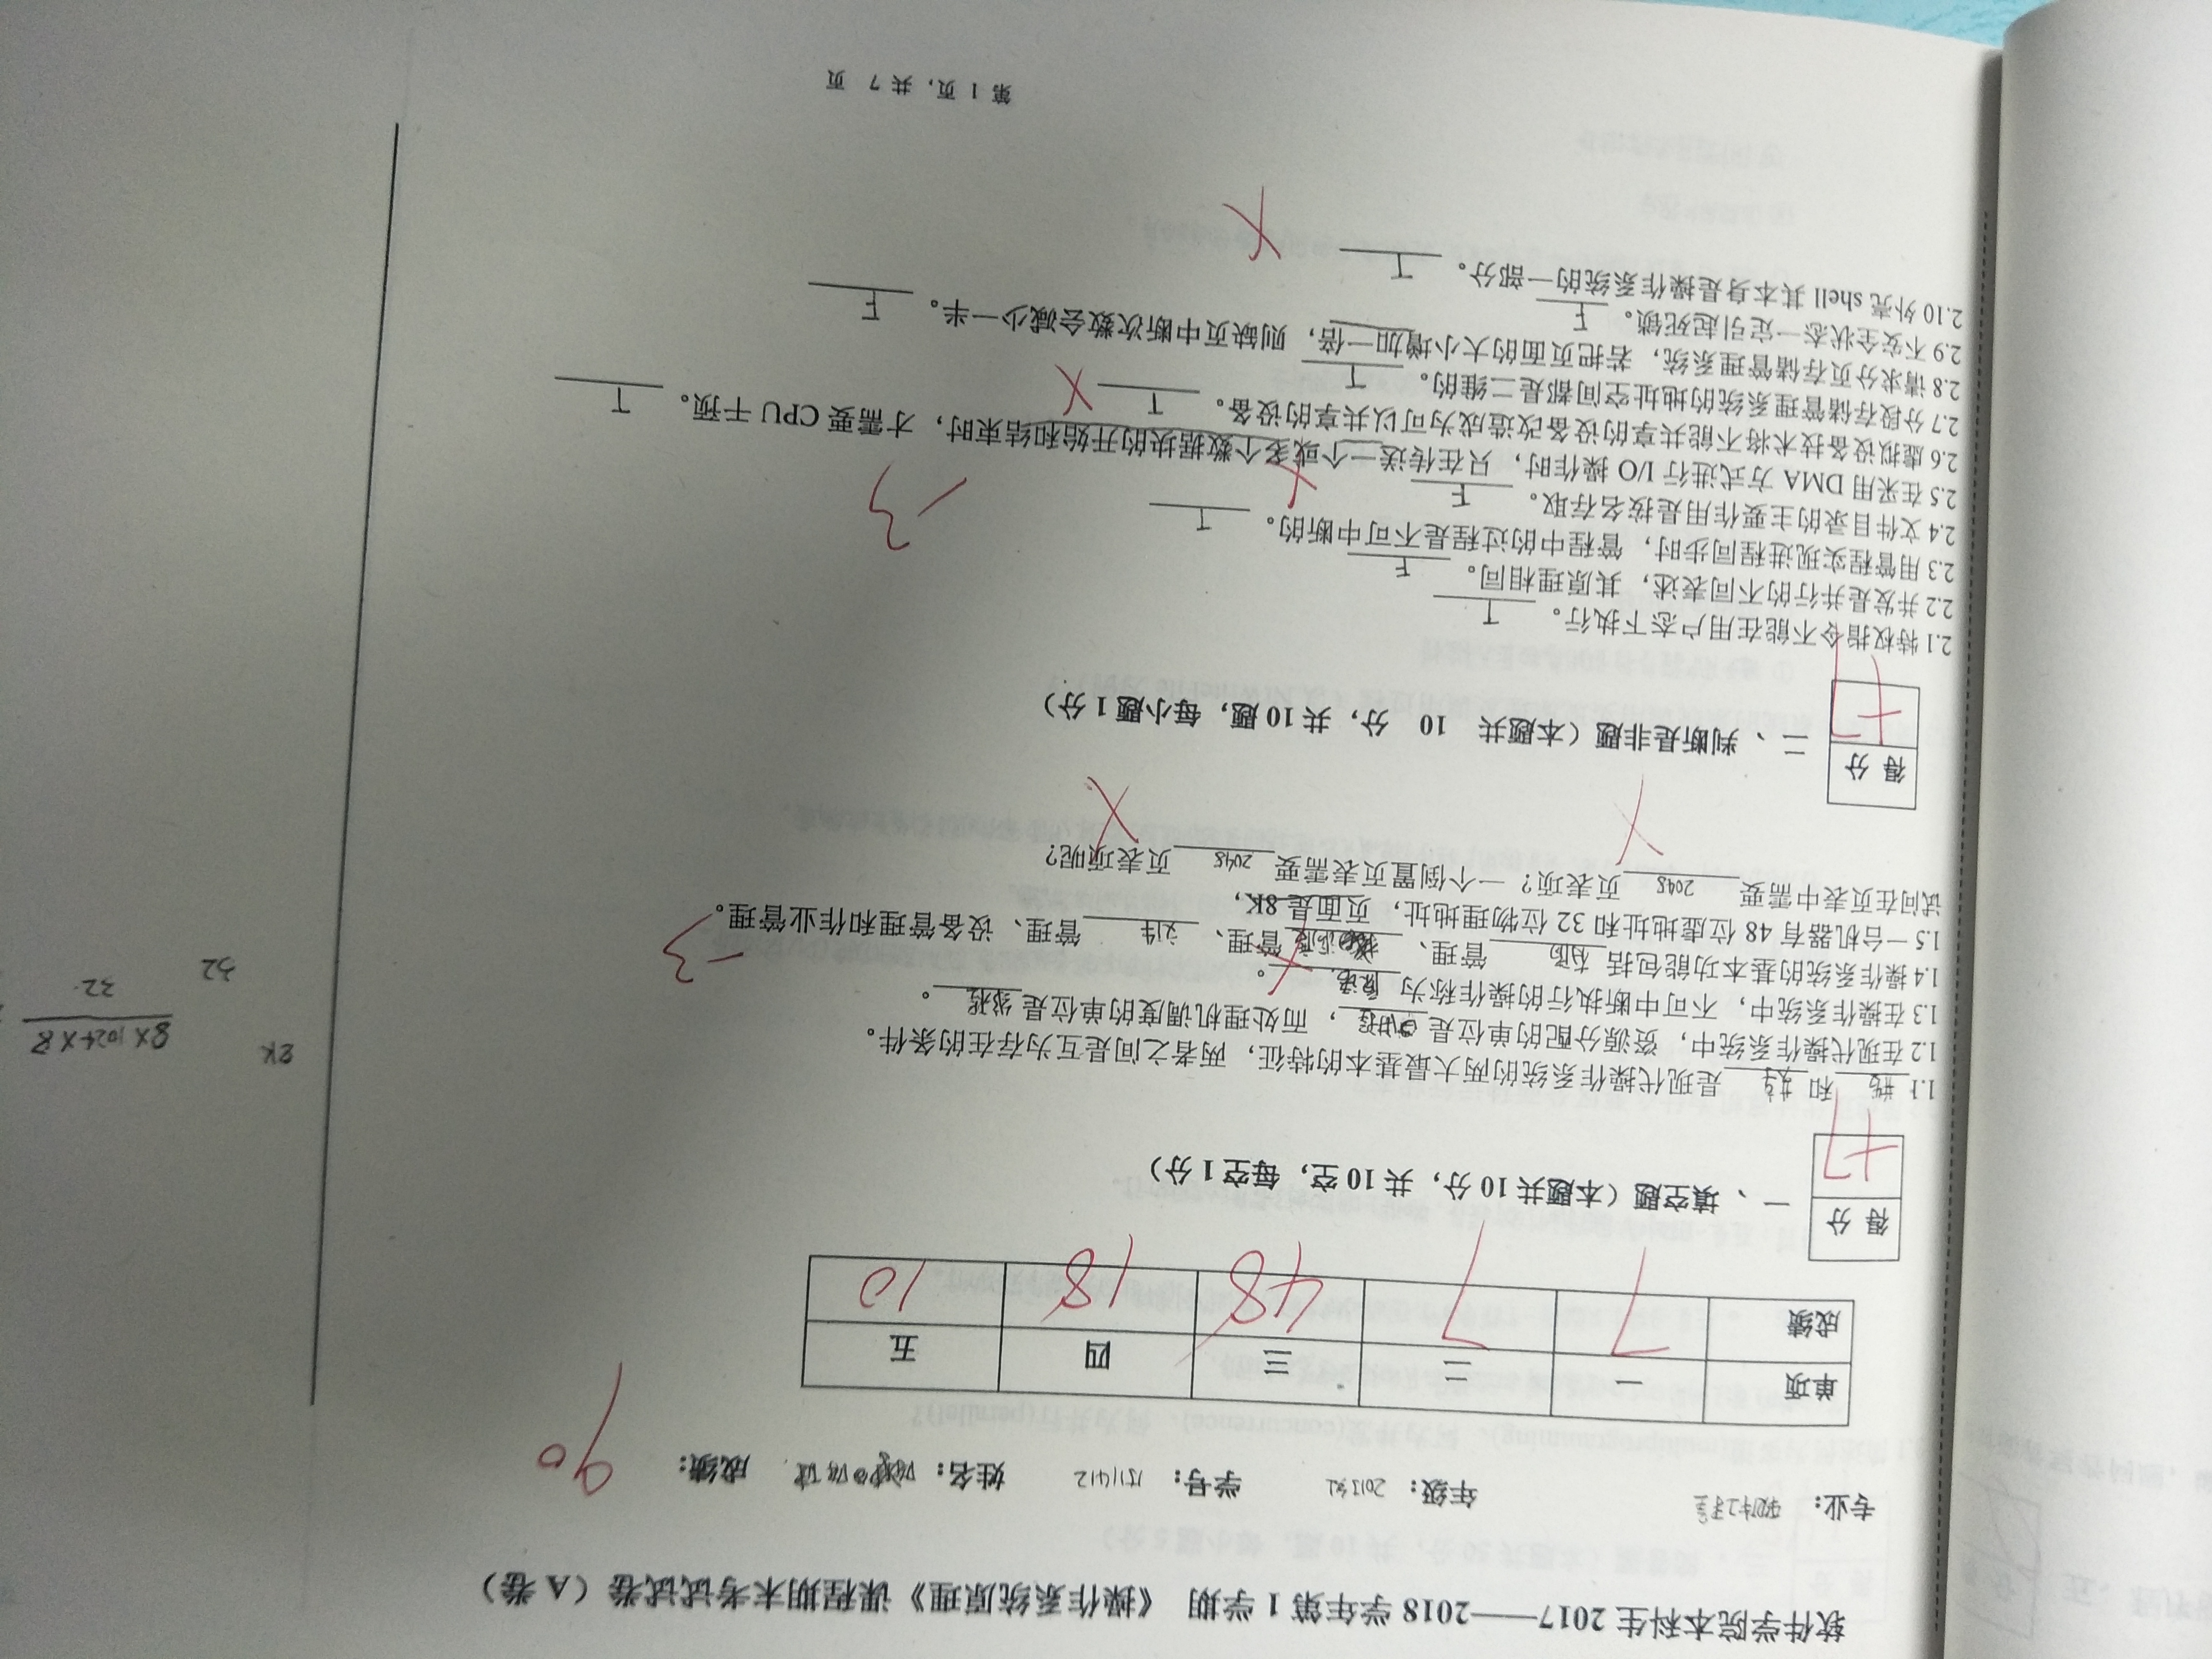 软件学院本科生 2017——2018 学年第 1 学期 《操作系统原理》课程期末考试试卷（A 卷）
专业： 软件工程 年级： 2015级 学号： 1511412 姓名： 成绩： 90
单项 一 二 三 四 五
成绩 7 7 48 18 10
得 分
+7
一 、填空题（本题共 10 分，共 10 空，每空 1 分）
1.1 并发 和 共享 是现代操作系统的两大最基本的特征，两者之间是互为存在的条件。
1.2 在现代操作系统中，资源分配的单位是 进程 ，而处理机调度的单位是 线程 。
1.3 在操作系统中，不可中断执行的操作称为 原语 。
1.4 操作系统的基本功能包括 存储 管理、 调度 管理、 文件 管理、设备管理和作业管理。
-3
1.5 一台机器有 48 位虚地址和 32 位物理地址，页面是 8K，
试问在页表中需要 2048 页表项？一个倒置页表需要 2048 页表项呢？
8K 8×1024×8
32 32
得 分
+7
二 、判断是非题（本题共 10 分，共 10 题，每小题 1 分）
2.1 特权指令不能在用户态下执行。 T
2.2 并发是并行的不同表述，其原理相同。 F
2.3 用管程实现进程同步时，管程中的过程是不可中断的。 T
2.4 文件目录的主要作用是按名存取。 F
-3
2.5 在采用 DMA 方式进行 I/O 操作时，只在传送一个或多个数据块的开始和结束时，才需要 CPU 干预。 T
2.6 虚拟设备技术将不能共享的设备改造成为可以共享的设备。 T
2.7 分段存储管理系统的地址空间都是二维的。 T
2.8 请求分页存储管理系统，若把页面的大小增加一倍，则缺页中断次数会减少一半。 F
2.9 不安全状态一定引起死锁。 F
2.10 外壳 shell 其本身是操作系统的一部分。 T
第 1 页，共 7 页